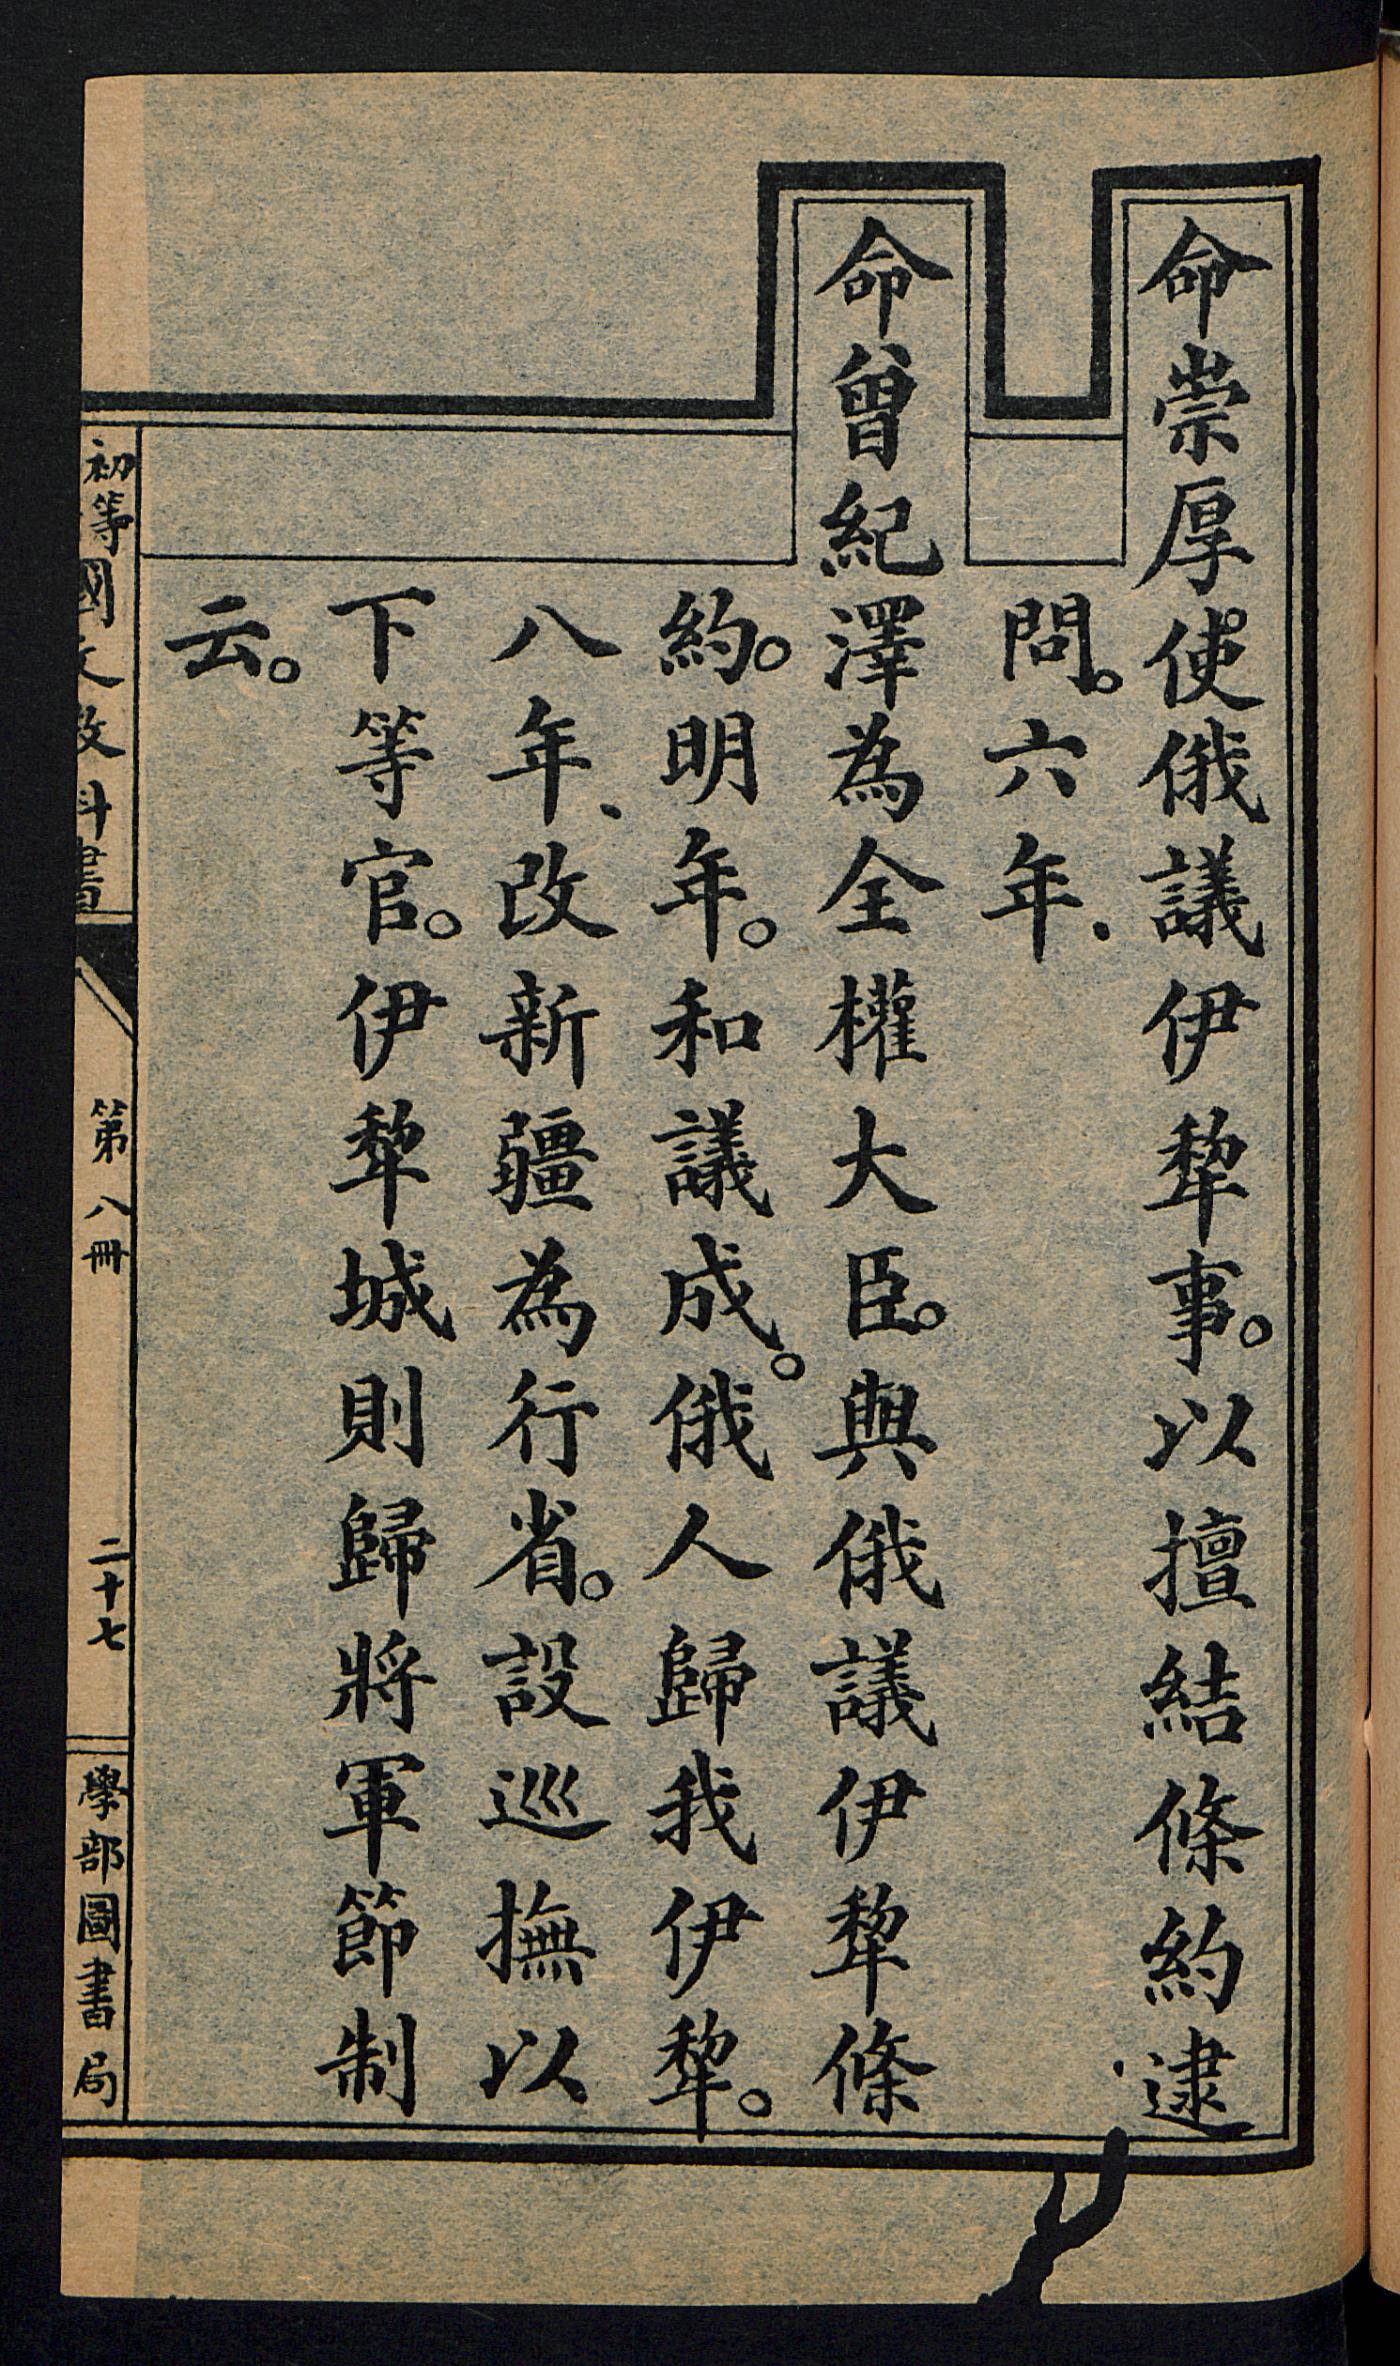 命崇厚使俄議伊犂事。以擅結條約逮
問。六年.
命曾紀澤為全權大臣。與俄議伊犂條
約。明年。和議成。俄人歸我伊犂。
八年、改新疆為行省。設巡撫以
下等官。伊犂城則歸將軍節制
云。
初等國文教科書 第八冊 二十七 學部圖書局